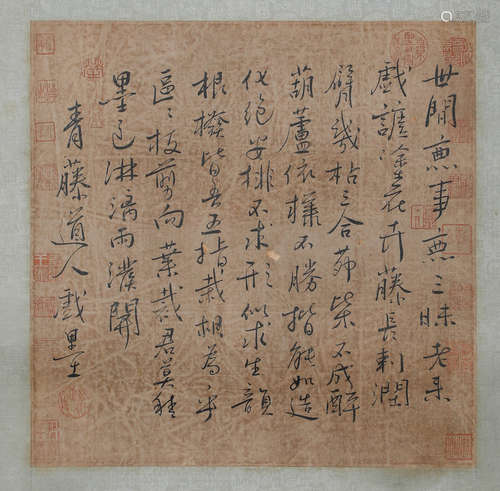 世間無事無三昧老来
戲謔塗花卉藤長刺闊
臂幾枯三合茆柴不成醉
葫蘆依樣不勝揩能如造
化絕安排不求形似求生韻
根撥皆吾五指栽胡為乎
區區枝剪向葉裁君莫猜
墨色淋漓雨潑開
青藤道人戲墨